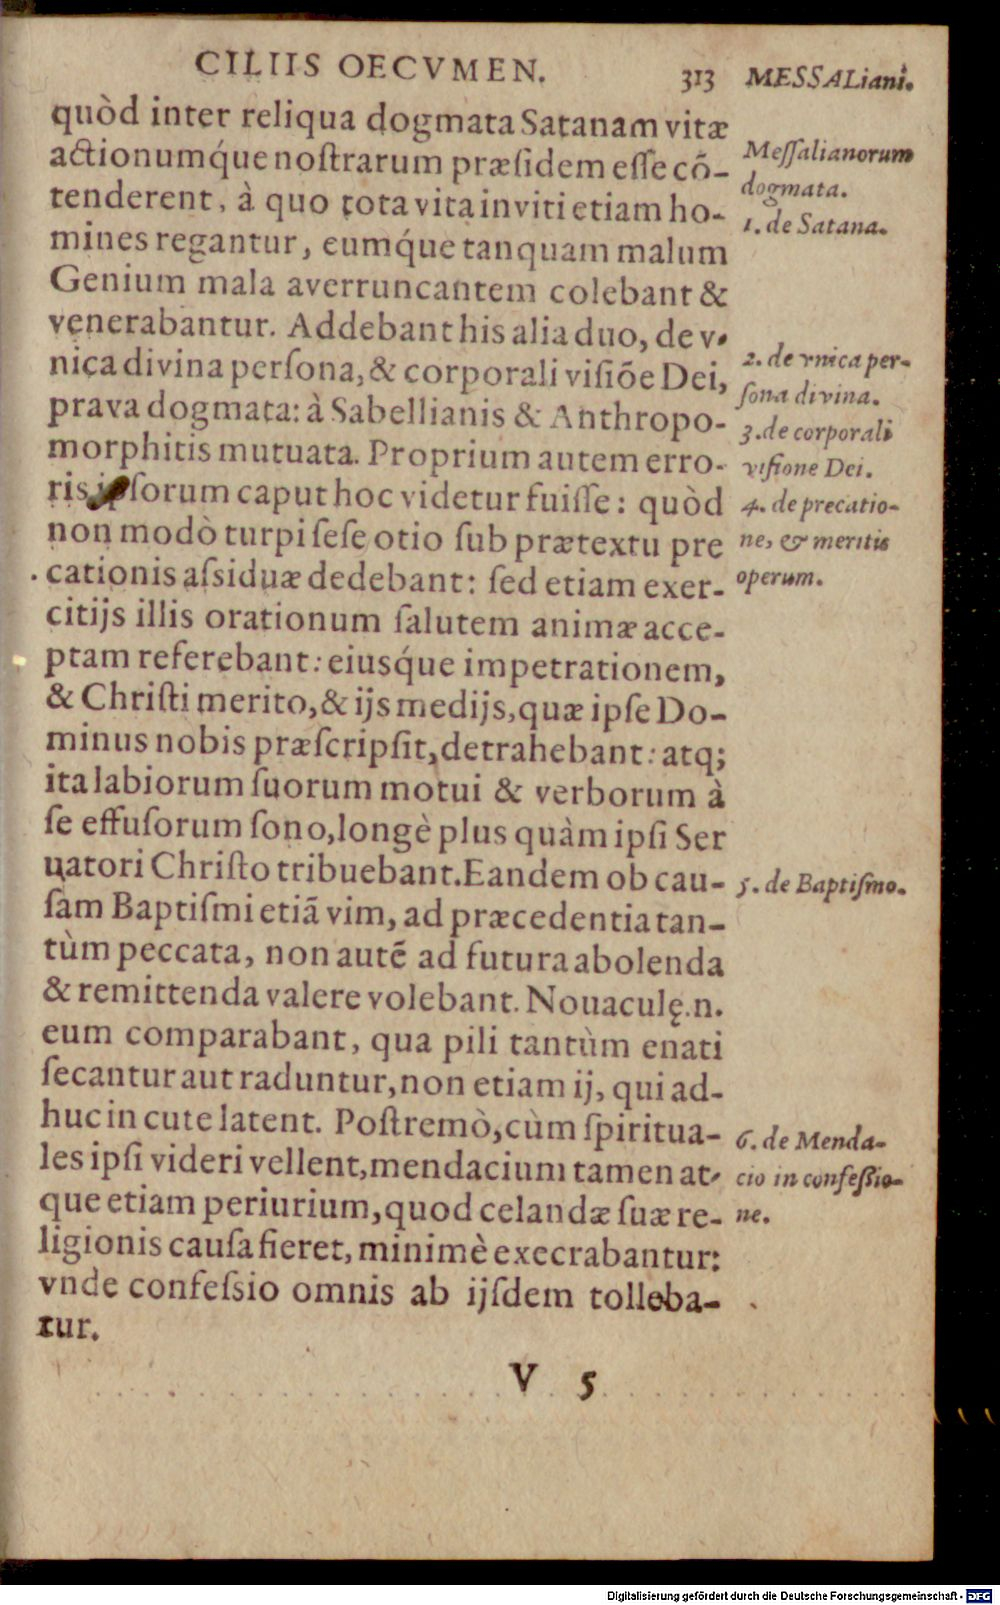 CILIIS OECVMEN. 313 MESSALiani.
quòd inter reliqua dogmata Satanam vitæ
actionumq́ue noſtrarum præſidem eſſe cō-
tenderent, à quo tota vita inviti etiam ho-
mines regantur, eumq́ue tanquam malum
Genium mala averruncantem colebant &
venerabantur. Addebant his alia duo, de v-
nica divina perſona, & corporali viſiōe Dei,
prava dogmata: à Sabellianis & Anthropo-
morphitis mutuata. Proprium autem erro-
ris ipſorum caput hoc videtur fuiſſe: quòd
non modò turpi ſeſe otio ſub prætextu pre
cationis aſsiduæ dedebant: ſed etiam exer-
citijs illis orationum ſalutem animæ acce-
ptam referebant: eiusq́ue impetrationem,
& Chriſti merito, & ijs medijs, quæ ipſe Do-
minus nobis præſcripſit, detrahebant: atq;
ita labiorum ſuorum motui & verborum à
ſe effuſorum ſono, longè plus quàm ipſi Ser
uatori Chriſto tribuebant. Eandem ob cau-
ſam Baptiſmi etiā vim, ad præcedentia tan-
tùm peccata, non autē ad futura abolenda
& remittenda valere volebant. Nouaculę.n.
eum comparabant, qua pili tantùm enati
ſecantur aut raduntur, non etiam ij, qui ad-
huc in cute latent. Poſtremò, cùm ſpiritua-
les ipſi videri vellent, mendacium tamen at-
que etiam periurium, quod celandæ ſuæ re-
ligionis cauſa fieret, minimè execrabantur:
vnde confeſsio omnis ab ijſdem tolleba-
tur.
V 5
Meſſalianorum
dogmata.
1. de Satana.
2. de vnica per-
ſona divina.
3. de corporali
viſione Dei.
4. de precatio-
ne, & meritis
operum.
5. de Baptiſmo.
6. de Menda-
cio in confeſsio-
ne.
Digitalisierung gefördert durch die Deutsche Forschungsgemeinschaft - DFG